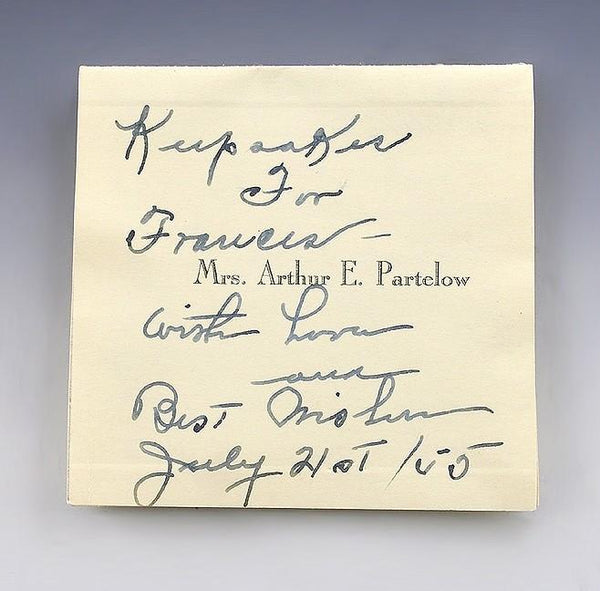 Keepsakes
For
Frances —
Mrs. Arthur E. Partelow
with Love
and
Best Wishes
July 21st /55